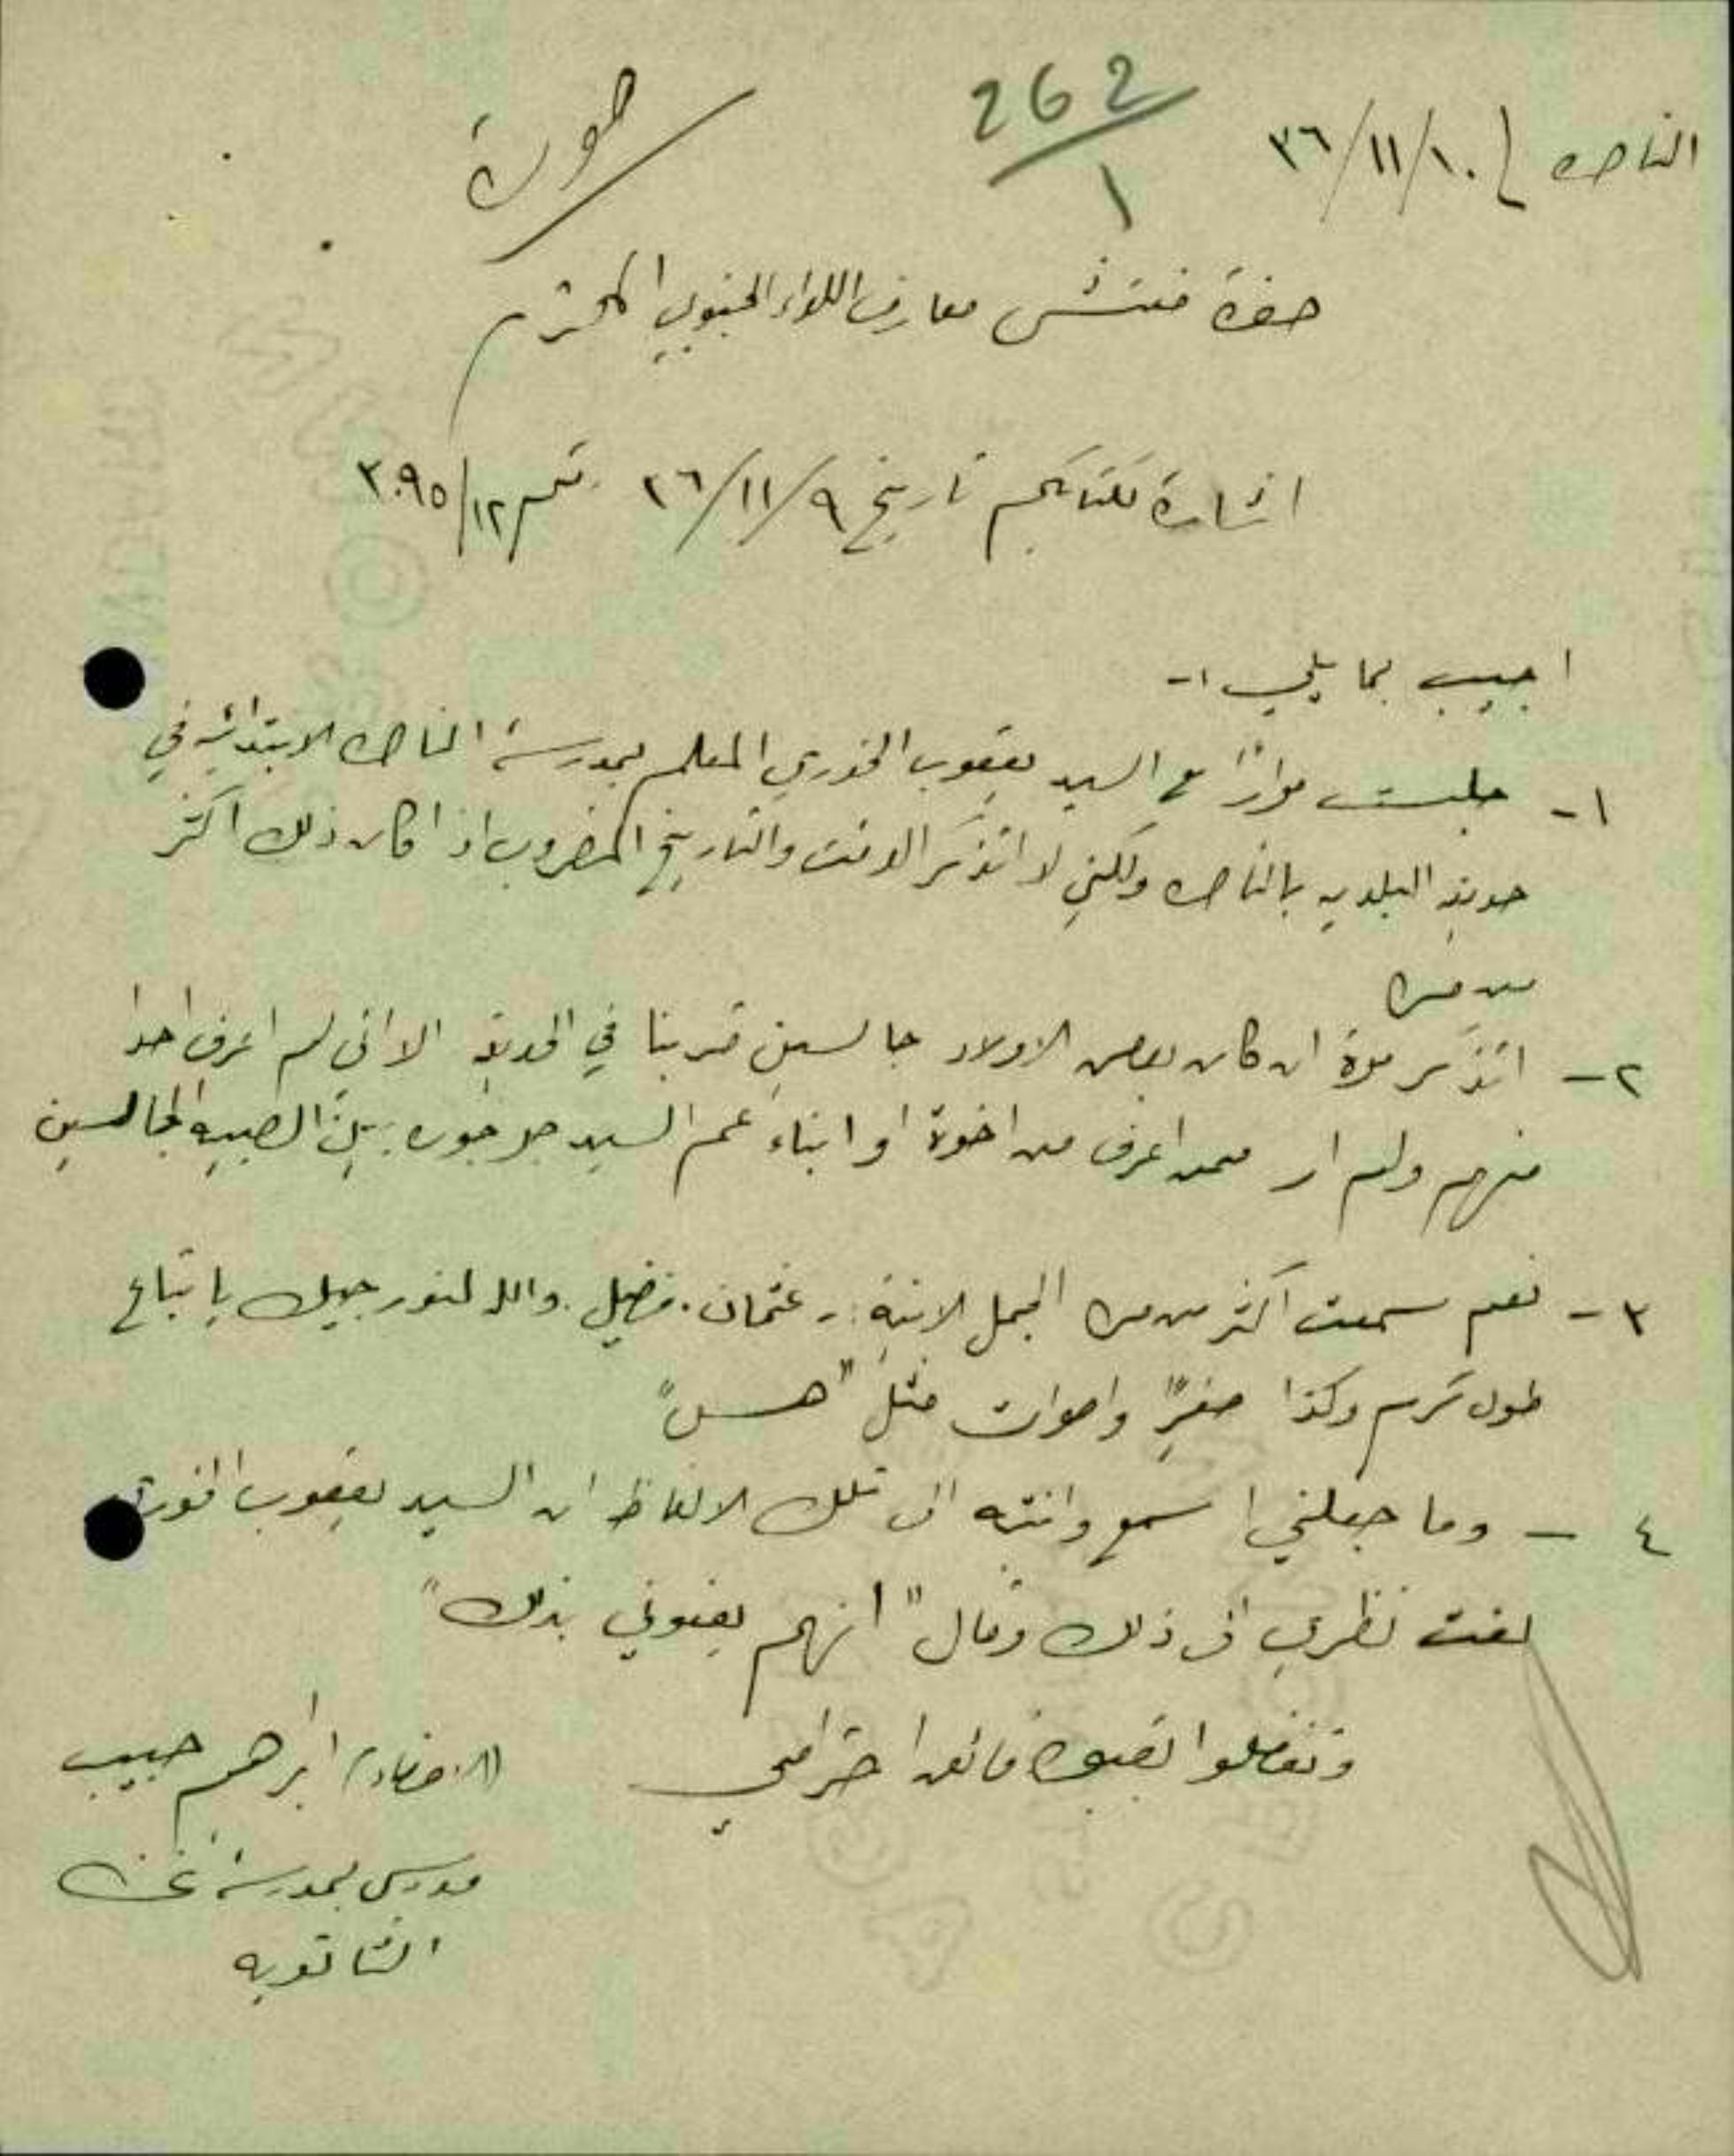 262
١
الناصره في ١٠/١١/٣٦
صورة
حضرة مفتش معارف اللواء الجنوبي المحترم
اشارة لكتابكم تاريخ ٩/١١/٣٦ رقم ١٢/٣٠٩٥
اجيب بما يلي :-
١- جلست مرارًا مع السيد يعقوب الخوري المعلم بمدرسة الناصره الابتدائيه في
حديقة البلديه بالناصره ولكني لا اتذكر الوقت والتاريخ المضروب اذا كان ذلك اكثر
من مره
٢- اتذكر مرة ان كان بعض الاولاد جالسين قربنا في الحديقه الا اني لم اعرف احدا
منهم ولم ار ممن اعرف من اخوة او ابناء عم السيد جورجوره بين الصبيه الجالسين
٣- نعم سمعت اكثر من مره الجمل الاتية :- عثمان . فضيل . والله لنورجيك يا بتاع
طول كرم وكذا صفيرًا واصوات مثل "هس"
٤- وما جعلني اسمع وانتبه الى تلك الالفاظ ان السيد يعقوب الخوري
لفت نظري الى ذلك وقال "انهم يعنوني بذلك"
وتفضلوا بقبول فائق احترامي
(الامضاء) ابراهيم حبيب
مدرس بمدرسة غزه
الثانويه